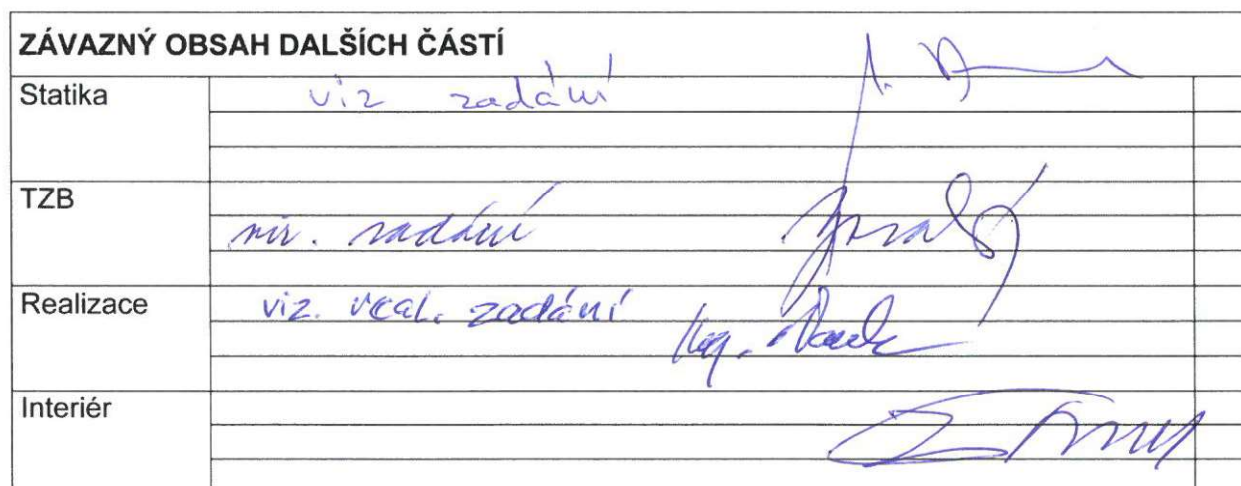 ZÁVAZNÝ OBSAH DALŠÍCH ČÁSTÍ
Statika viz zadání
TZB viz. zadání
Realizace viz. real. zadání
Ing.
Interiér